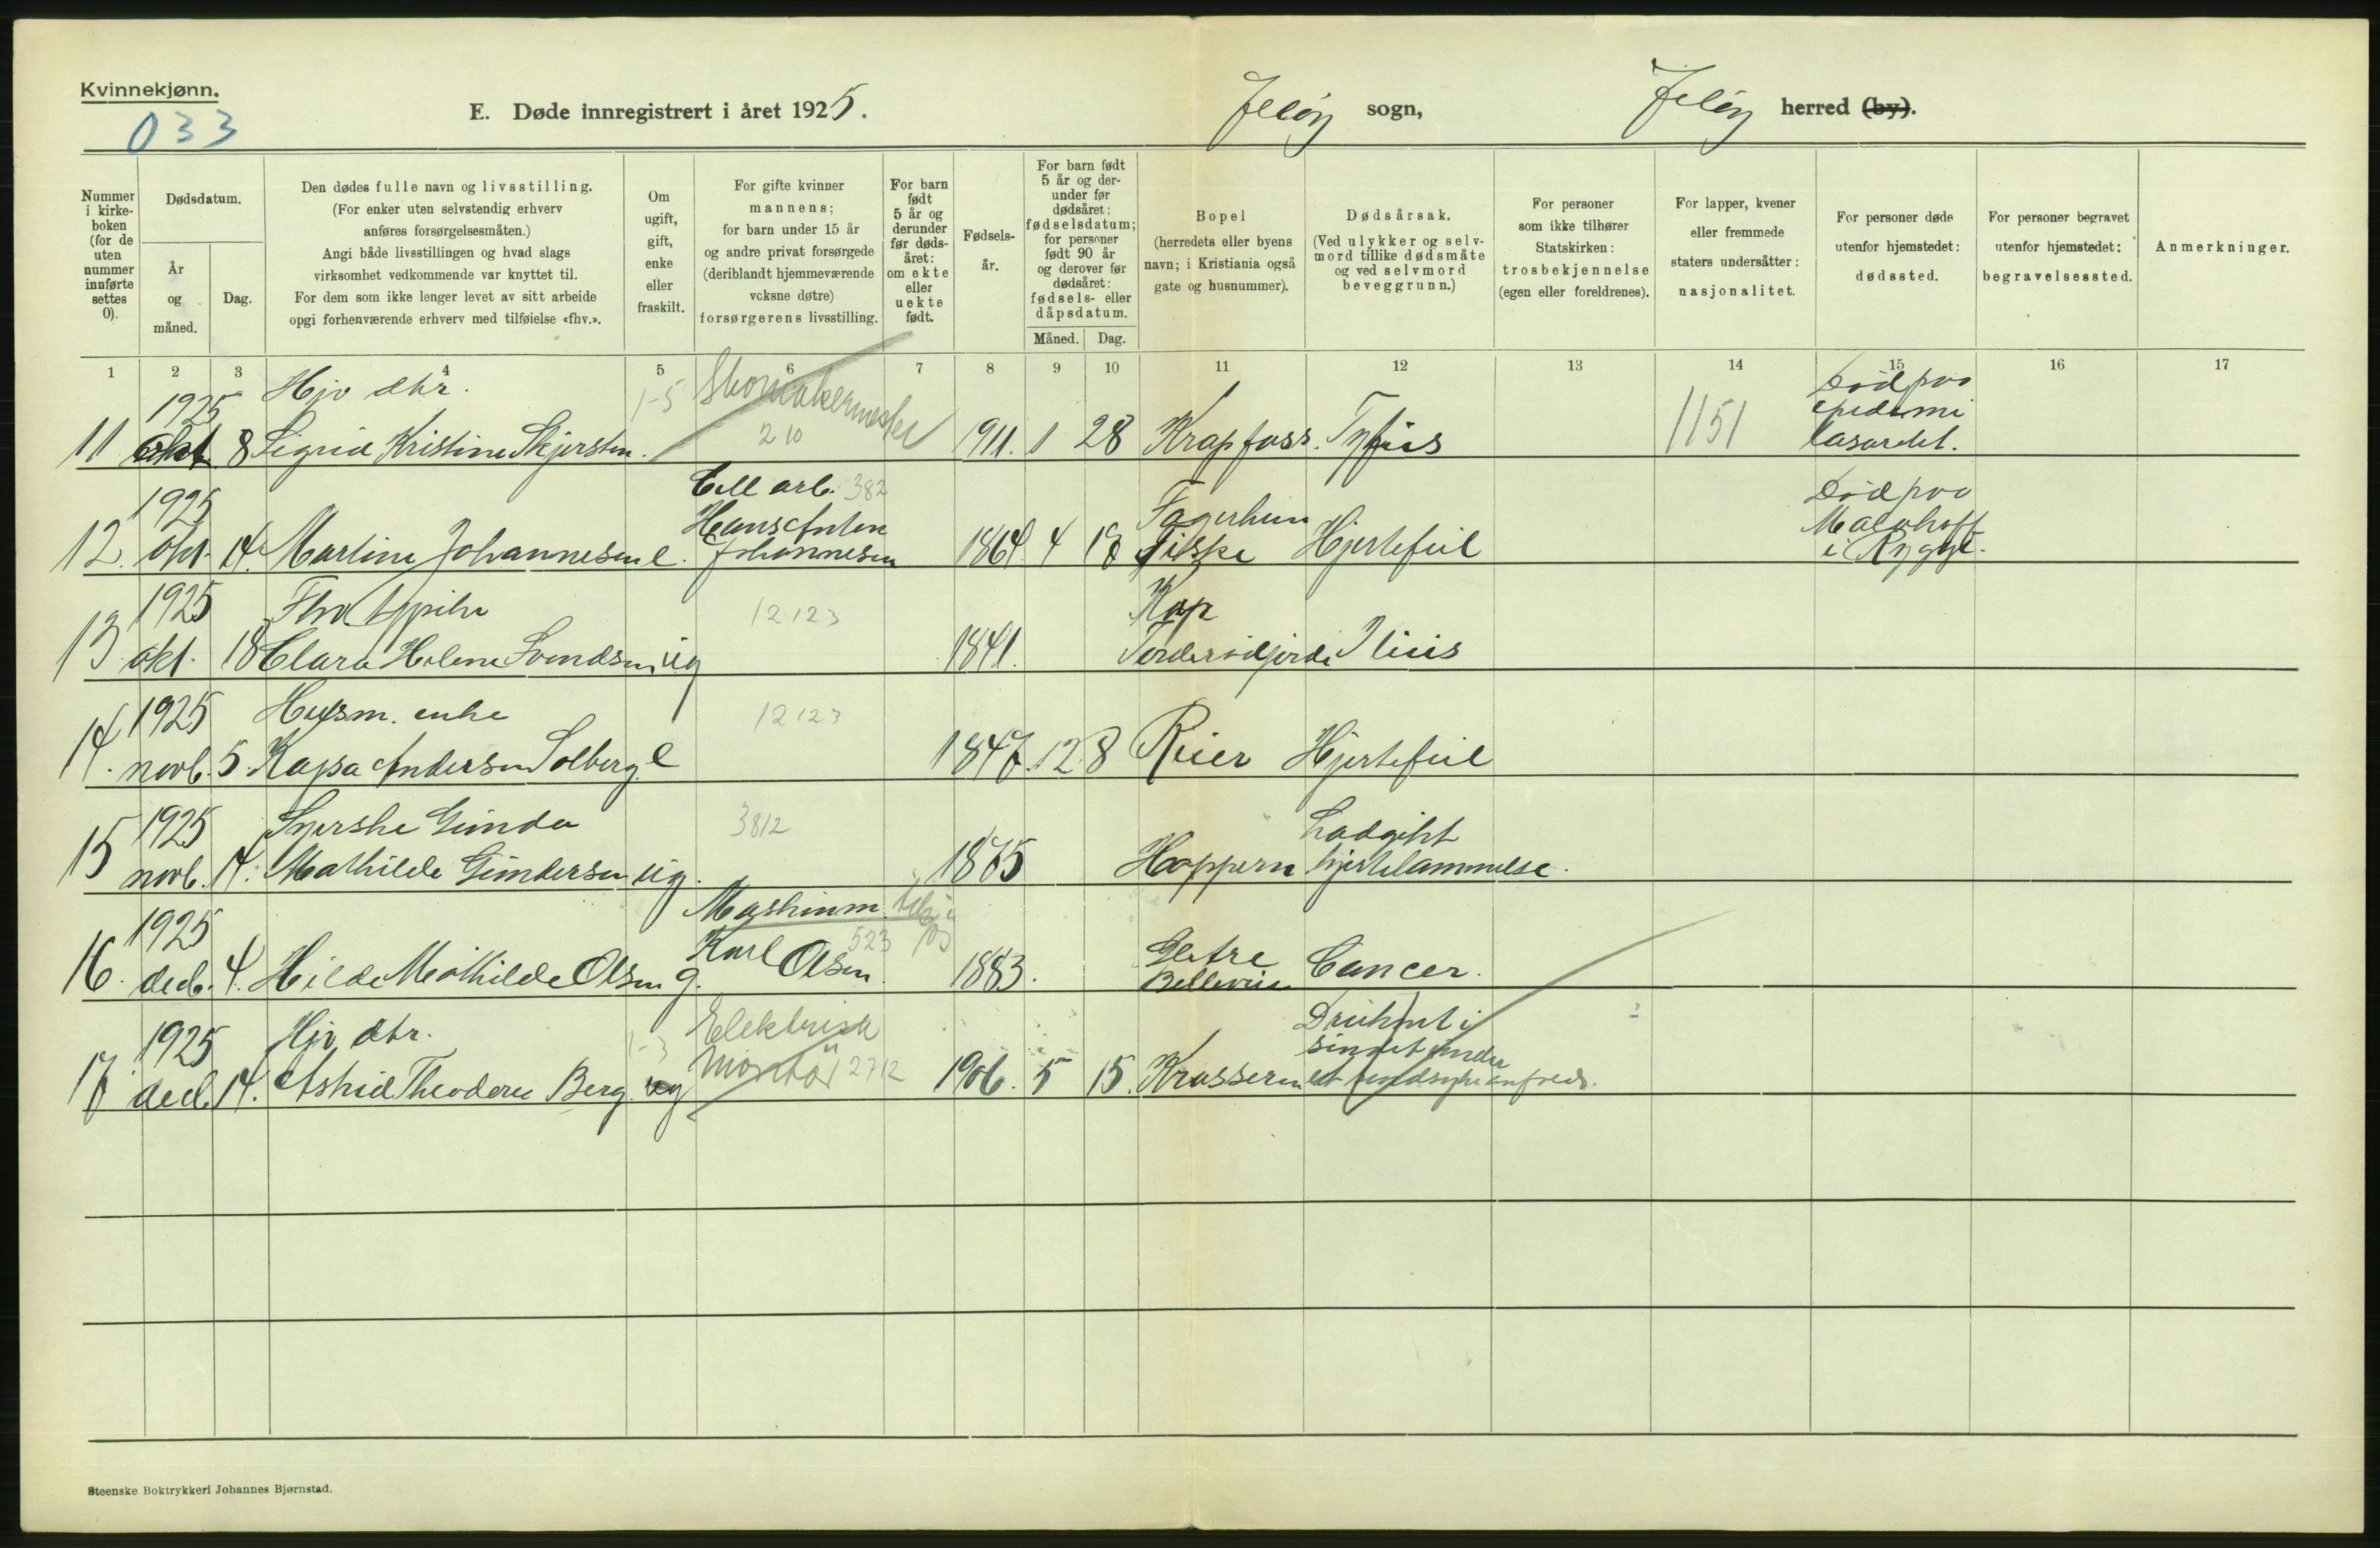 Kvinnekjønn.
033
E. Døde innregistrert i året 1925.
Jeløy sogn,
Jeløy herred (by).
Nummer i kirke-boken (for de uten nummer innførte settes 0).
Dødsdatum.
År og måned.
Dag.
Den dødes fulle navn og livsstilling.
(For enker uten selvstendig erhverv
anføres forsørgelsesmåten.)
Angi både livsstillingen og hvad slags
virksomhet vedkommende var knyttet til.
For dem som ikke lenger levet av sitt arbeide
opgi forhenværende erhverv med tilføielse «fhv.».
Om
ugift,
gift,
enke
eller
fraskilt.
For gifte kvinner
mannens;
for barn under 15 år
og andre privat forsørgede
(deriblandt hjemmeværende
voksne døtre)
forsørgerens livsstilling.
For barn
født
5 år og
derunder
før døds-
året:
om ekte
eller
uekte
født.
Fødsels-
år.
For barn født
5 år og der-
under før
dødsåret:
fødselsdatum;
for personer
født 90 år
og derover før
dødsåret:
fødsels- eller
dåpsdatum.
Måned. Dag.
Bopel
(herredets eller byens
navn; i Kristiania også
gate og husnummer).
Dødsårsak.
(Ved ulykker og selv-
mord tillike dødsmåte
og ved selvmord
beveggrunn.)
For personer
som ikke tilhører
Statskirken:
trosbekjennelse
(egen eller foreldrenes).
For lapper, kvener
eller fremmede
staters undersåtter:
nasjonalitet.
For personer døde
utenfor hjemstedet:
dødssted.
For personer begravet
utenfor hjemstedet:
begravelsessted.
Anmerkninger.
1 2 3 4 5 6 7 8 9 10 11 12 13 14 15 16 17
1925 Hjv dtr. 1-5 Skomakermester Død paa
epidemi
11 okt 8 Sigrid Kristine Skjersten. 210 1911. 1 28 Krapfoss. Tyfus 1151 lasarettet.
1925 Cell arb. 382 Fagerheim Død paa
Hans Anten Malahoff
12. okt. 14. Martine Johannesen e. Johannesen 1864. 4 18 Tilske Hjertefeil i Rygge.
1925 Fhv 12123 Kap
13. okt. 18 Clara Helene Svendsen ug 1841. Ileus
1925 Husm. enke 12123
14. novb. 5. Kajsa Andersen Solberg e 1847. 12 8 Reier Hjertefeil
1925 Syerske Gunda 3812
15 novb. 14. Mathilde Gundersen ug. 1875 Hoppern hjertelammelse.
1925 Maskinm.
Karl 523
16. decb. 4. Hilda Mathilde Olsen g. Olsen. 1883. Bellevue Cancer.
1925 Hjv dtr. 1-3 Elektrisk Druknet i
montør 2712 sundet under
17 decb. 14. Astrid Theodora Berg. ug 1906. 5 15. Krossern et sindsykeanfald.
Steenske Boktrykkeri Johannes Bjørnstad.